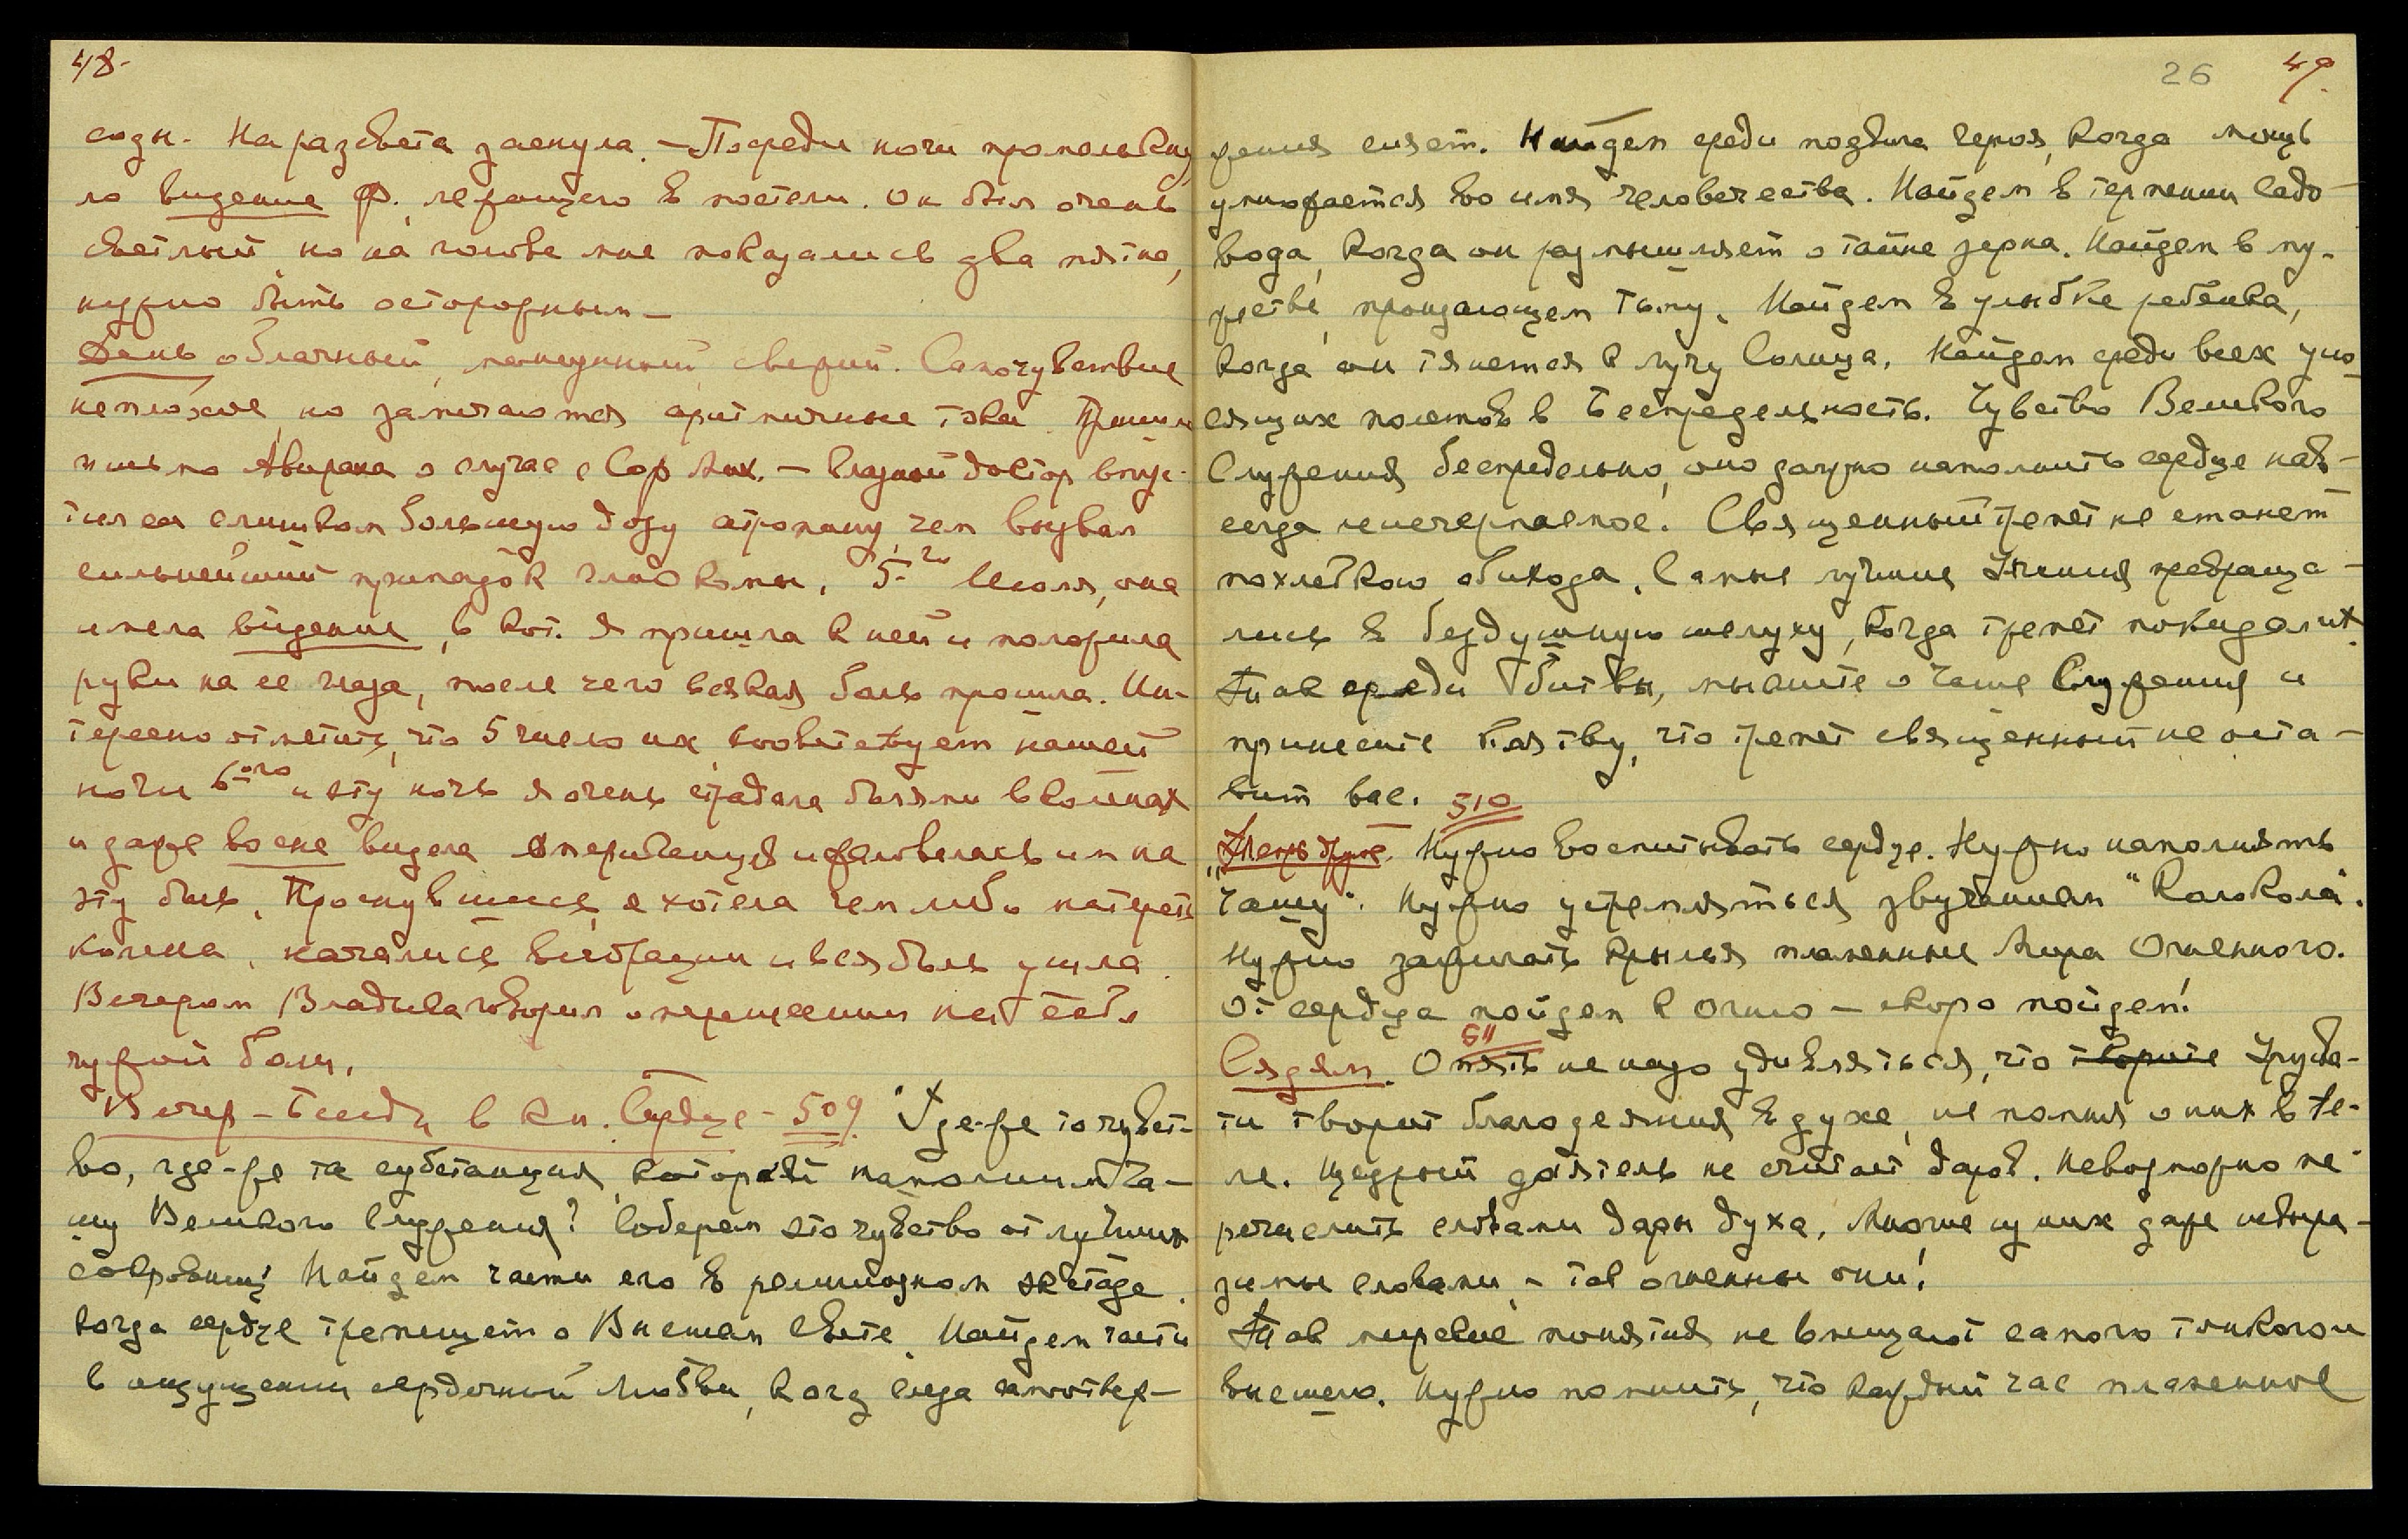 48-
сизы. На разсвета заснула. — Посреди ночи промелькну
ло видение Ф. лежащего в постели. Он был очень
светлый, но на голове мне показались два пятна,
нужно быть осторожным —
День облачный, свежий. Самочувствие
неплохое, но замечаются аритмичные токи. Пришли
письма Авирака о случае с Соф. Мих. — Глазной доктор впус-
тил ей слишком большую дозу атропину, чем вызвал
сильнейший припадок глаукомы. 5-го Июля, она
имела видение, в кот. я пришла к ней и положила
руки на ее глаза, после чего всякая боль прошла. Ин-
тересно отметить, что 5 число их соответствует нашей
ночи 6-ого и эту ночь я очень страдала болями в коленах
и даже во сне видела Американца и жаловалась им на
эту боль. Проснувшись, я хотела чем либо натереть
колена, начались вибрации и вся боль ушла.
Вечером Владыка говорил о перенесении на себя
чужой боли.
Вечер — Беседы в кн. Сердце — 509. Где-же то чувст-
во, где-же та субстанция, которой наполним Ча-
шу Великого Служения? Соберем это чувство от лучших
сокровищ. Найдем части его в религиозном экстазе,
когда сердце трепещет о Высшем Свете. Найдем части
в ощущении сердечной любви, когда слеза самоотвер-
26 49.
жения сияет. Найдем среди подвига героя, когда мощь
умножается во имя человечества. Найдем в терпении садо-
вода, когда он размышляет о тайне зерна. Найдем в му-
жестве, пронзающем тьму. Найдем в улыбке ребенка,
когда он тянется к лучу Солнца. Найдем среди всех уно-
сящих полетов в Беспредельность. Чувство Великого
Служения беспредельно, оно должно наполнить сердце нав-
сегда неисчерпаемое. Священный трепет не станет
похлебкою обихода. Самые лучшие Учения превраща-
лись в бездушную шелуху, когда трепет покидал их.
Так среди битвы, мыслите о Чаше Служения и
принесите клятву, что трепет священный не оста-
вит вас. 510
Нужно воспитывать сердце. Нужно наполнять
"Чашу". Нужно устремляться звучанием "Колокола".
Нужно зажигать крылья пламенные Мира Огненного.
От сердца пойдем к Огню — скоро пойдем!
511
Сядем. Опять не надо удивляться, что творите Уруса-
ти творит благодеяния в духе, не помня о них в те-
ле. Щедрый даятель не считает даров. Невозможно пе-
речислить словами дары духа. Многие из них даже невыра-
зимы словами, — так огненны они!
Так мирские понятия не вмещают самого тонкого и
высшего. Нужно помнить, что каждый час пламенное